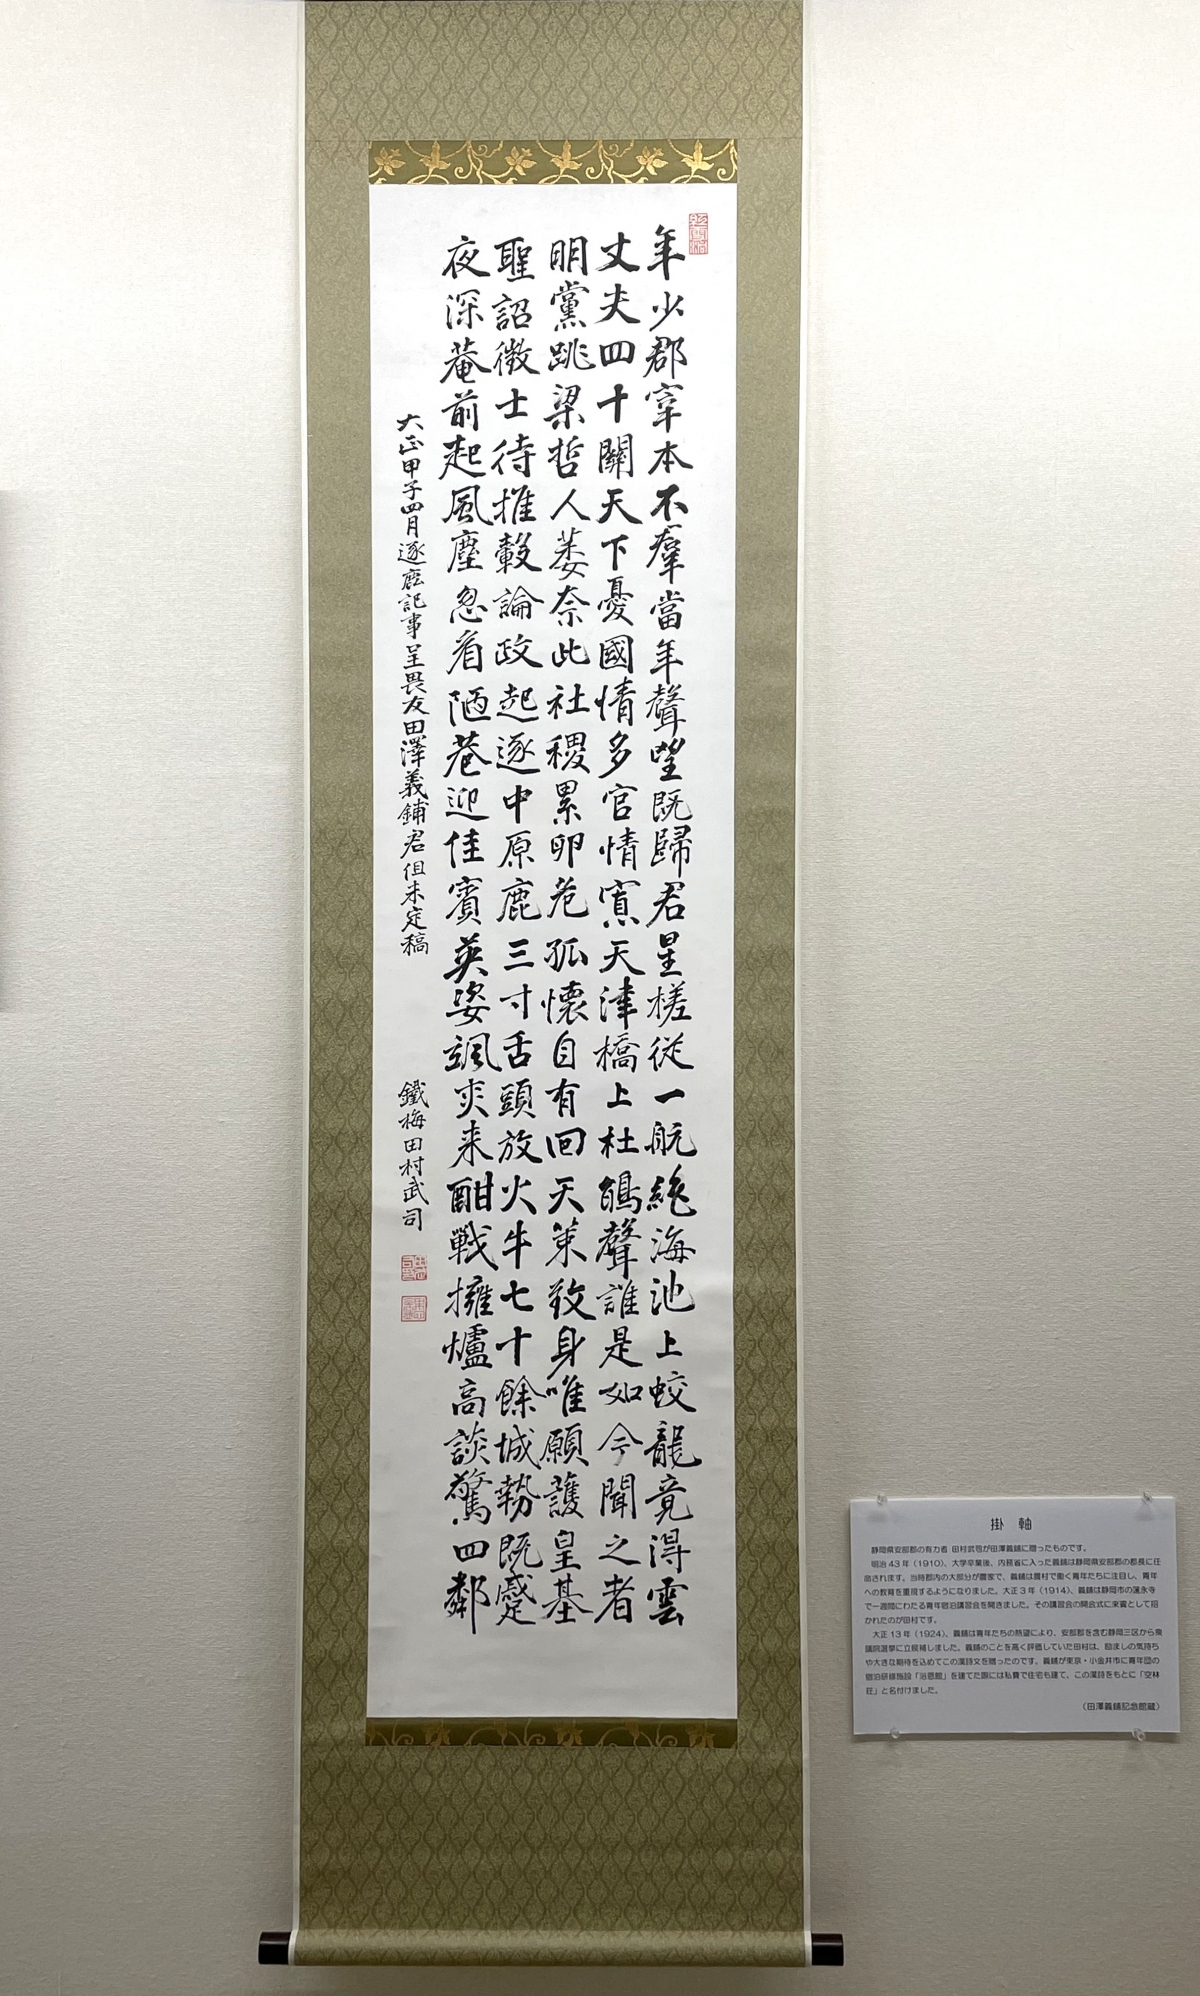 年少郡宰本不羣當年聲望既歸君星槎従一航絶海池上蛟龍竟得雲
丈夫四十關天下憂國情多官情寡天津橋上杜鵑聲誰是如今聞之者
明黨跳梁哲人萎奈此社稷累卵危孤懐自有回天策致身唯願護皇基
聖詔徴士待推轂論政起逐中原鹿三寸舌頭放火牛七十餘城勢既蹙
夜深菴前起風塵忽看陋巷迎佳賓英姿颯爽来酣戦擁爐高談驚四鄰
大正甲子四月逐鹿記事呈畏友田澤義鋪君但未定稿
鐵梅田村武司
掛 軸
静岡県安部郡の有力者 田村武司が田澤義鋪に贈ったものです。
明治43年（1910）、大学卒業後、内務省に入った義鋪は静岡県安部郡の郡長に任
命されます。当時郡内の大部分が農家で、義鋪は農村で働く青年たちに注目し、青年
への教育を重視するようになりました。大正3年（1914）、義鋪は静岡市の蓮永寺
で一週間にわたる青年宿泊講習会を開きました。その講習会の開会式に来賓として招
かれたのが田村です。
大正13年（1924）、義鋪は青年たちの熱望により、安部郡を含む静岡三区から衆
議院選挙に立候補しました。義鋪のことを高く評価していた田村は、励ましの気持ち
や大きな期待を込めてこの漢詩文を贈ったのです。義鋪が東京・小金井市に青年団の
宿泊研修施設「浴恩館」を建てた際には私費で住宅も建て、この漢詩をもとに「空林
荘」と名付けました。
（田澤義鋪記念館蔵）